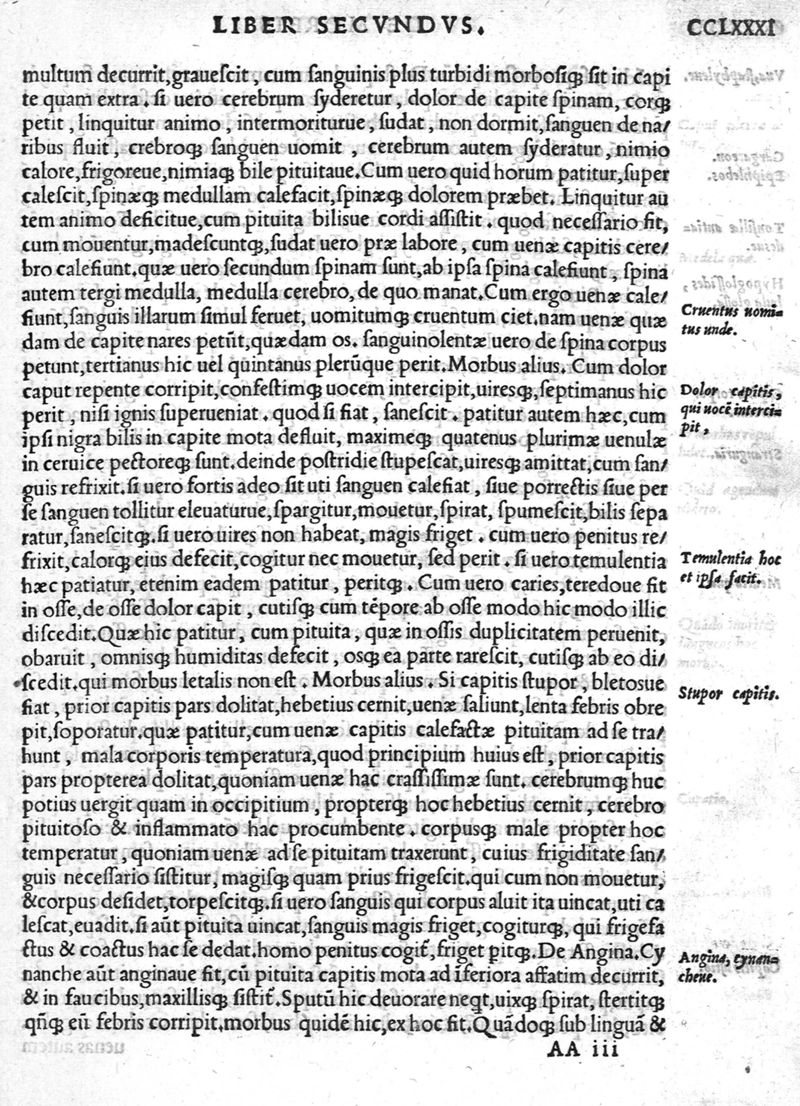 LIBER SECVNDVS.
CCLXXXI
multum decurrit,grauescit, cum sanguinis plus turbidi morbosiqꝫ sit in capi
te quam extra. si uero cerebrum syderetur, dolor de capite spinam, corqꝫ
petit, linquitur animo, intermoriturue, sudat, non dormit, sanguen de na/
ribus fluit, crebroqꝫ sanguen uomit, cerebrum autem syderatur, nimio
calore, frigoreue, nimiaqꝫ bile pituitaue. Cum uero quid horum patitur, super
calescit, spinæqꝫ medullam calefacit, spinæqꝫ dolorem præbet. Linquitur au
tem animo deficitue, cum pituita bilisue cordi assistit. quod necessario fit,
cum mouentur, madescuntqꝫ, sudat uero præ labore, cum uenæ capitis cere/
bro calefiunt. quæ uero secundum spinam sunt, ab ipsa spina calefiunt, spina
autem tergi medulla, medulla cerebro, de quo manat. Cum ergo uenæ cale/
fiunt, sanguis illarum simul feruet, uomitumqꝫ cruentum ciet. nam uenæ quæ
dam de capite nares petũt, quædam os. sanguinolentæ uero de spina corpus
petunt, tertianus hic uel quintanus plerũque perit. Morbus alius. Cum dolor
caput repente corripit, confestimqꝫ uocem intercipit, uiresqꝫ, septimanus hic
perit, nisi ignis superueniat. quod si fiat, sanescit. patitur autem hæc, cum
ipsi nigra bilis in capite mota defluit, maximeqꝫ quatenus plurimæ uenulæ
in ceruice pectoreqꝫ sunt. deinde postridie stupescat, uiresqꝫ amittat, cum san/
guis refrixit. si uero fortis adeo sit uti sanguen calefiat, siue porrectis siue per
se sanguen tollitur eleuaturue, spargitur, mouetur, spirat, spumescit, bilis sepa
ratur, sanescitqꝫ. si uero uires non habeat, magis friget. cum uero penitus re/
frixit, calorqꝫ eius defecit, cogitur nec mouetur, sed perit. si uero temulentia
hæc patiatur, etenim eadem patitur, peritqꝫ. Cum uero caries, teredoue fit
in osse, de osse dolor capit, cutisqꝫ cum tẽpore ab osse modo hic modo illic
discedit. Quæ hic patitur, cum pituita, quæ in ossis duplicitatem peruenit,
obaruit, omnisqꝫ humiditas defecit, osqꝫ ea parte rarescit, cutisqꝫ ab eo di/
scedit. qui morbus letalis non est. Morbus alius. Si capitis stupor, bletosue
fiat, prior capitis pars dolitat, hebetius cernit, uenæ saliunt, lenta febris obre
pit, soporatur. quæ patitur, cum uenæ capitis calefactæ pituitam ad se tra/
hunt, mala corporis temperatura, quod principium huius est, prior capitis
pars propterea dolitat, quoniam uenæ hac crassissimæ sunt. cerebrumqꝫ huc
potius uergit quam in occipitium, propterqꝫ hoc hebetius cernit, cerebro
pituitoso & inflammato hac procumbente. corpusqꝫ male propter hoc
temperatur, quoniam uenæ ad se pituitam traxerunt, cuius frigiditate san/
guis necessario sistitur, magisqꝫ quam prius frigescit. qui cum non mouetur,
& corpus desidet, torpescitqꝫ. si uero sanguis qui corpus aluit ita uincat, uti ca
lescat, euadit. si aũt pituita uincat, sanguis magis friget, cogiturqꝫ, qui frigefa
ctus & coactus hac se dedat. homo penitus cogit̃, friget ꝑitqꝫ. De Angina. Cy
nanche aũt anginaue fit, cũ pituita capitis mota ad ĩferiora affatim decurrit,
& in faucibus, maxillisqꝫ sistit̃. Sputũ hic deuorare neqt, uixqꝫ spirat, stertitqꝫ
qñqꝫ eũ febris corripit. morbus quidẽ hic, ex hoc fit. Quãdoqꝫ sub linguã &
AA iii
Cruentus uomi=
tus unde.
Dolor capitis,
qui uocẽ interci=
pit,
Temulentia hoc
et ipsa facit.
Stupor capitis.
Angina, cynan=
cheue.